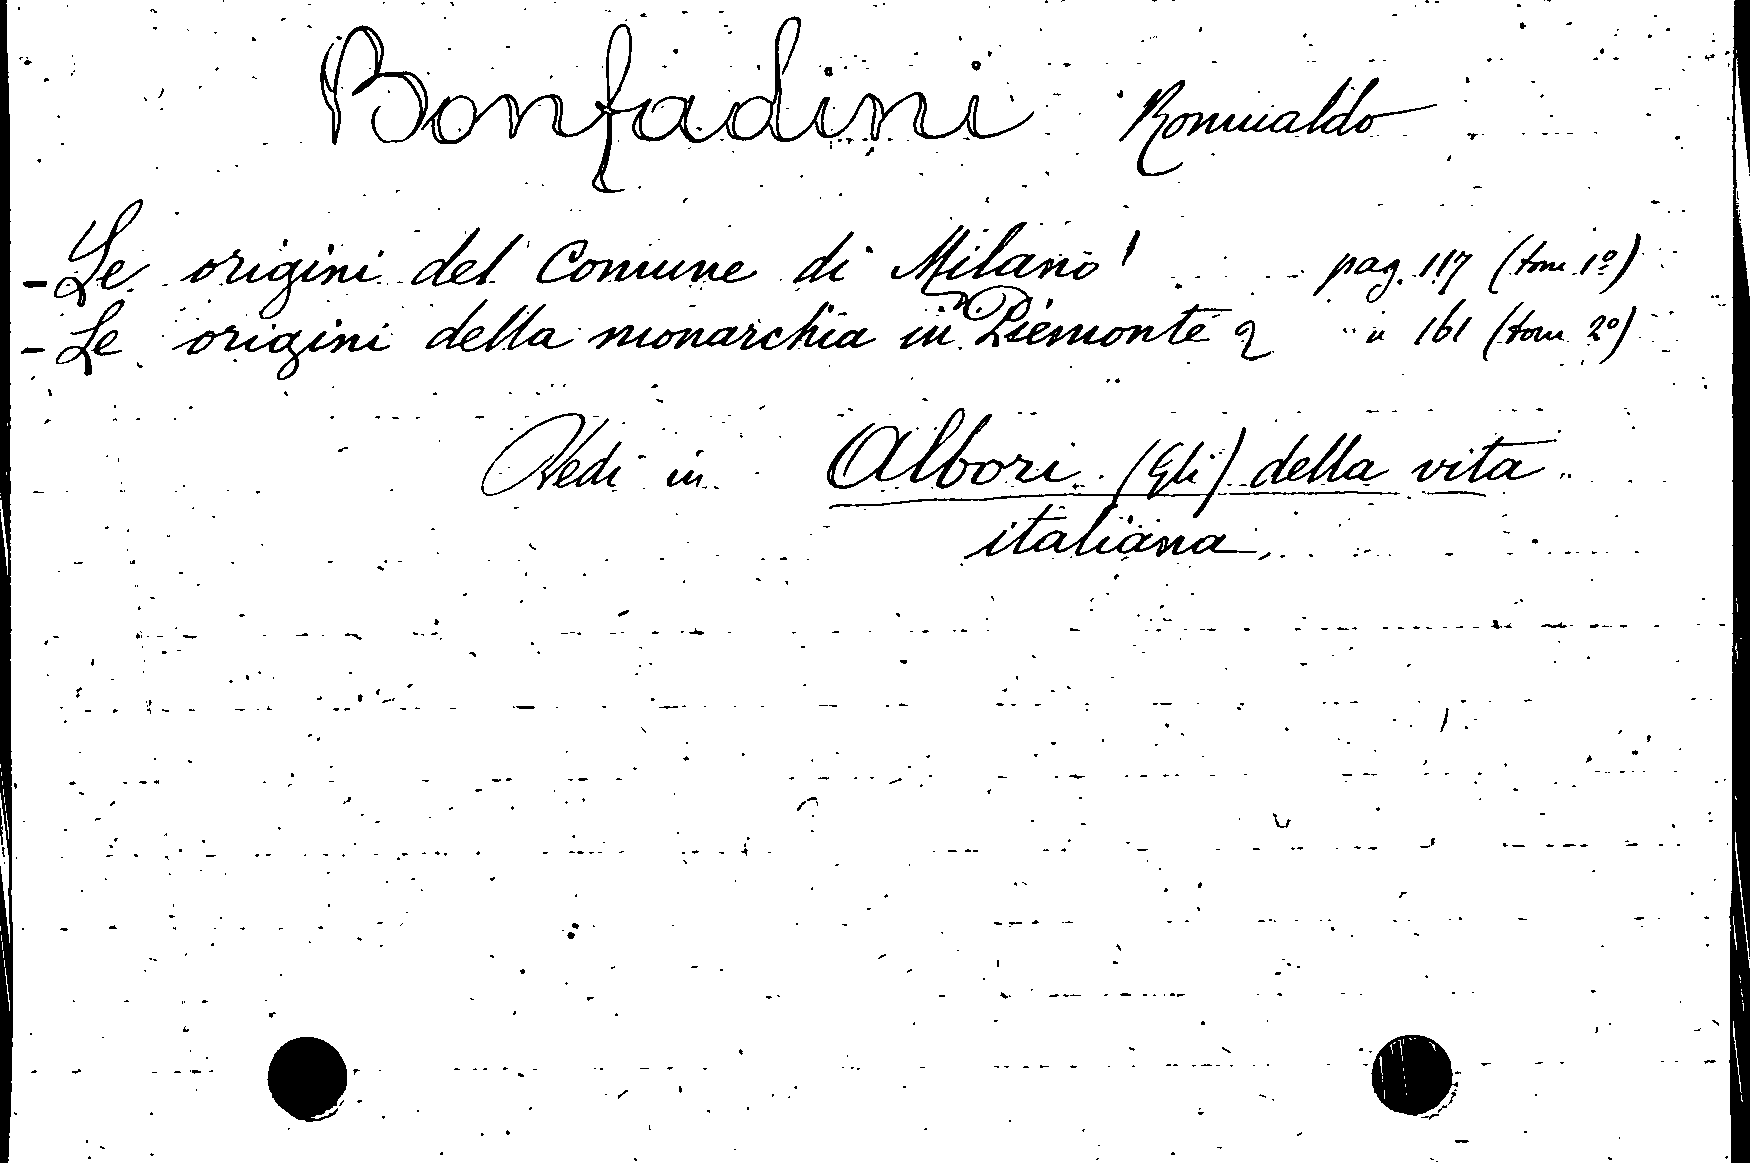 Bonfadini Romualdo
- Le origini del Comune di Milano 1 pag. 117 (tom 1º)
- Le origini della monarchia in Piemonte 2 " 161 (tom 2º)
Vedi in Albori (Gli) della vita
italiana.